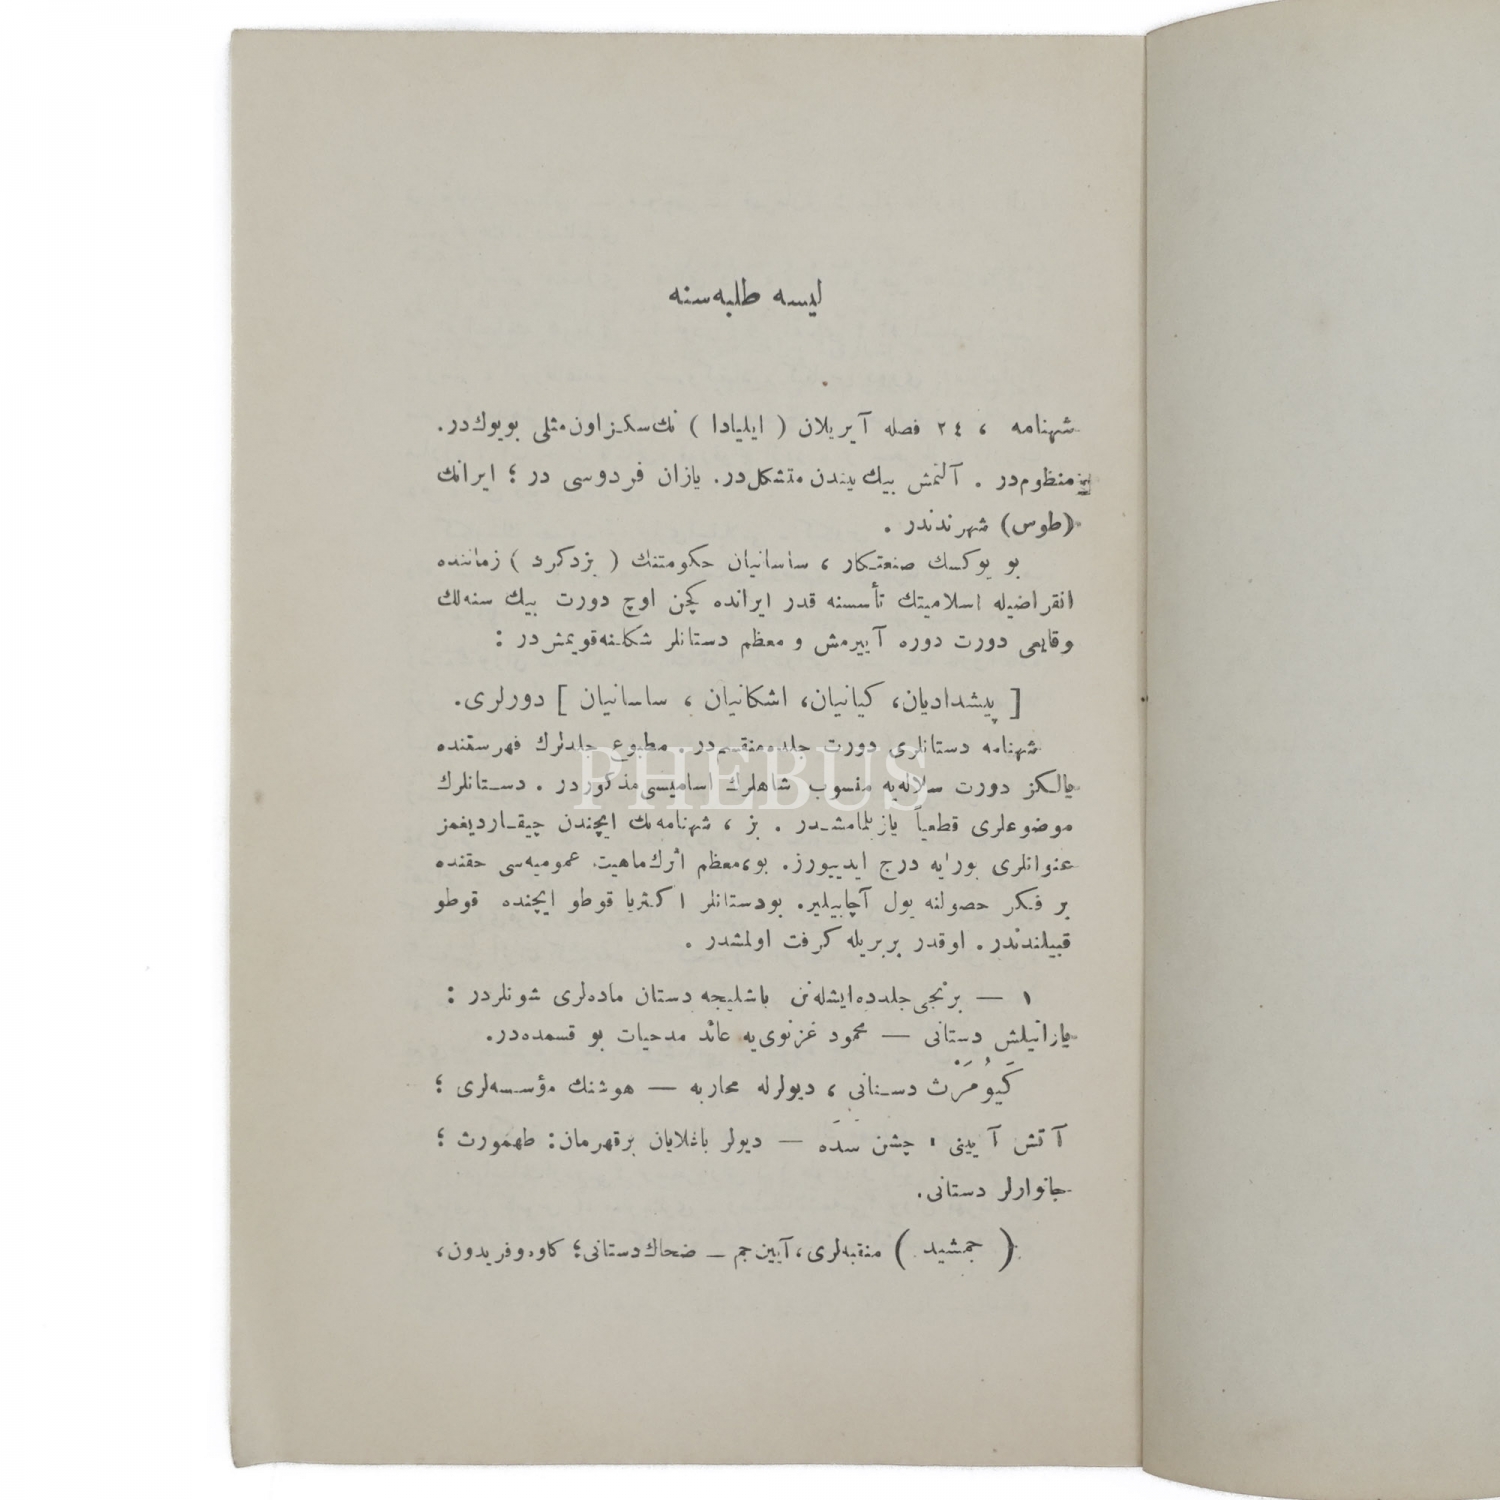 ليسه طلبه‌سنه
شهنامه ، ٢٤ فصله آيريلان ( ايليادا ) نك‌سكزاون‌مثلى بويوك‌در.
منظوم‌در . آلتمش بيك بيتدن متشكل‌در. يازان فردوسى در ؛ ايرانك
(طوس) شهرندندر .
بو يوكسك صنعتكار ، ساسانيان حكومتنك ( يزدكرد ) زماننده
انقراضيله اسلاميتك تأسسنه قدر ايرانده كچن اوچ دورت بيك سنه‌لك
وقايعى دورت دوره آييرمش و معظم دستانلر شكلنه‌قويمش‌در :
[ پيشداديان، كيانيان، اشكانيان ، ساسانيان ] دورلرى.
شهنامه دستانلرى دورت جلده‌منقسم‌در. مطبوع جلدلرك فهرستنده
يالكز دورت سلاله‌يه منسوب شاهلرك اساميسى‌مذكوردر . دستانلرك
موضوعلرى قطعياً يازيلمامشدر . بز ، شهنامه‌نك ايچندن چيقارديغمز
عنوانلرى بورايه درج ايدييورز. بو،معظم اثرك‌ماهيت عموميه‌سى حقنده
بر فكر حصولنه يول آچابيلير. بودستانلر اكثريا قوطو ايچنده قوطو
قبيلندندر. اوقدر بربريله كرفت اولمشدر .
١ — برنجى‌جلدده‌ايشله‌نن باشليجه دستان ماده‌لرى شونلردر :
ياراتيلش دستانى — محمود غزنوى‌يه عائد مدحيات بو قسمده‌در.
كَيُومَرْث دستانى ، ديولرله محاربه — هوشنك مؤسسه‌لرى ؛
آتش آيينى ، جشن سَدَه — ديولر باغلايان برقهرمان: طهمورث ؛
جانوارلر دستانى.
( جمشيد ) منقبه‌لرى، آيين‌جم — ضحاك‌دستانى؛ كاوه‌وفريدون،
PHEBUS